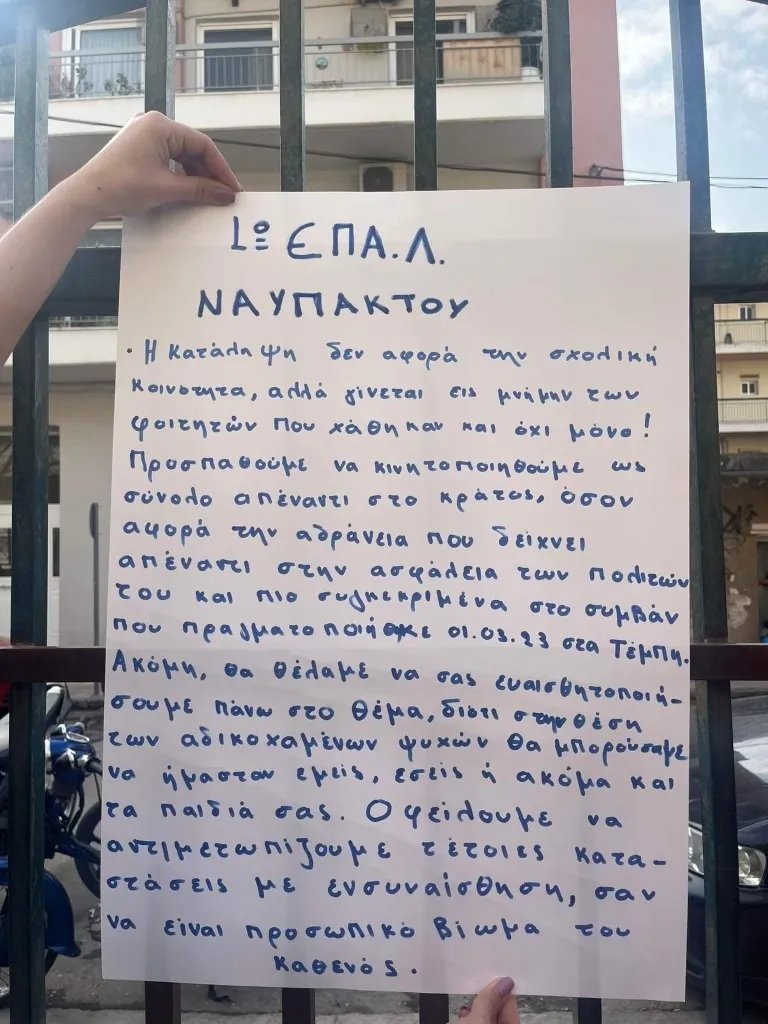 1ο ΕΠΑ.Λ.
ΝΑΥΠΑΚΤΟΥ
· Η κατάληψη δεν αφορά την σχολική
κοινότητα, αλλά γίνεται εις μνήμην των
φοιτητών που χάθηκαν και όχι μόνο!
Προσπαθούμε να κινητοποιηθούμε ως
σύνολο απέναντι στο κράτος, όσον
αφορά την αδράνεια που δείχνει
απέναντι στην ασφάλεια των πολιτών
του και πιο συγκεκριμένα στο συμβάν
που 01.03.23 στα Τέμπη.
Ακόμη, θα θέλαμε να σας ευαισθητοποιή-
σουμε πάνω στο θέμα, διότι στην θέση
των αδικοχαμένων ψυχών θα μπορούσαμε
να ήμασταν εμείς, εσείς ή ακόμα και
τα παιδιά σας. Οφείλουμε να
αντιμετωπίζουμε τέτοιες κατα-
στάσεις με ενσυναίσθηση, σαν
να είναι προσωπικό βίωμα του
καθενός.